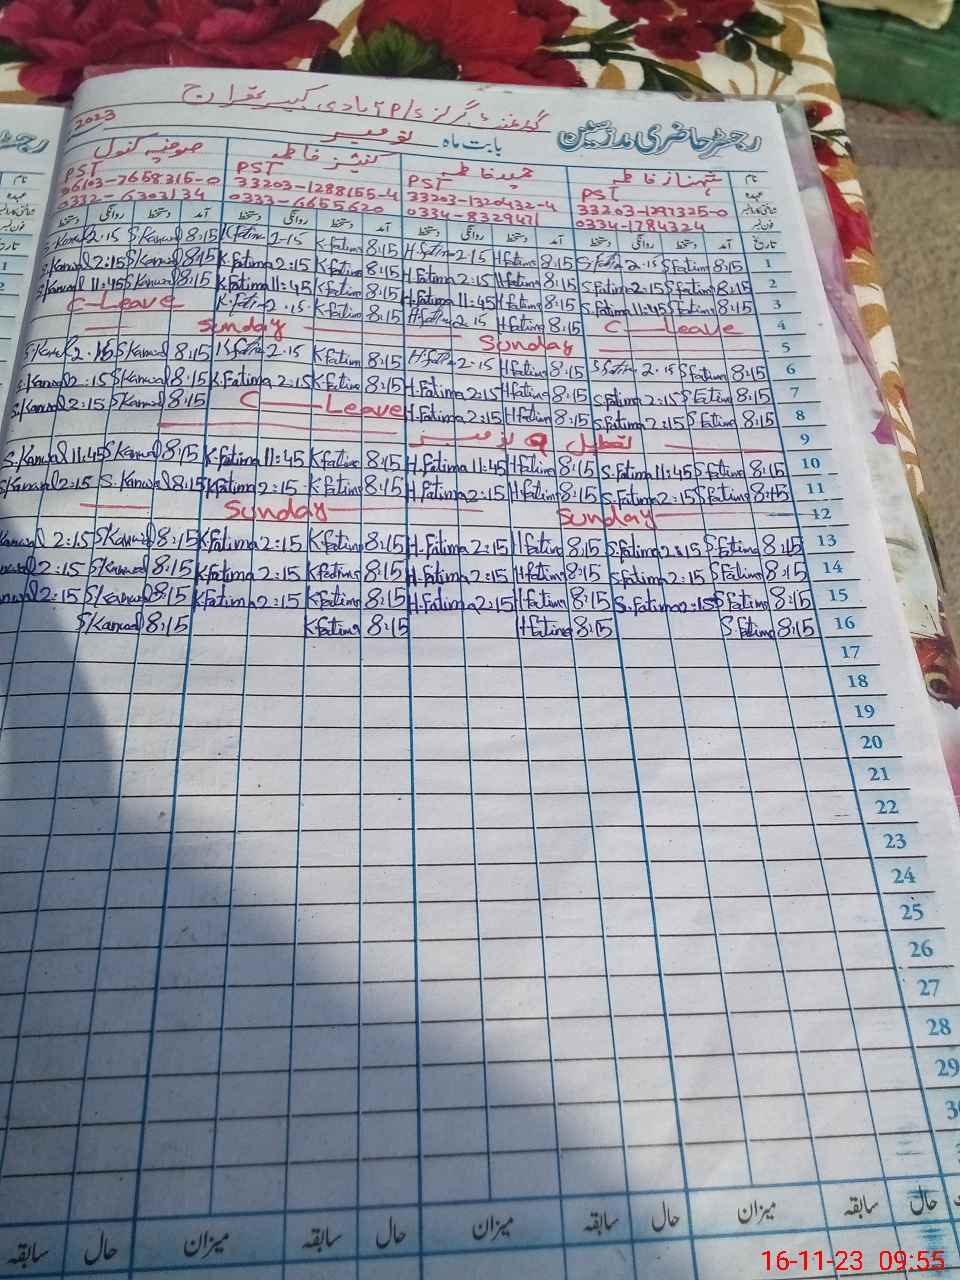 گورنمنٹ گرلز P/S آبادی
2023 نومبر بابت ماہ رجسٹر حاضری مدرسین
نام شہناز فاطمہ کنیز فاطمہ
عہدہ PST PST PST PST
33203-1297325-0 33203-1320432-4 33203-1288155-4 06103-7658315-0
0334-1784324 0334-8329471 0333-6655620 0332-6303134
تاریخ آمد دستخط روانگی دستخط آمد دستخط روانگی دستخط آمد دستخط روانگی دستخط آمد دستخط روانگی دستخط
1 8:15 S.fatima 2.15 S.fatima 8:15 H.fatima 2.15 H.fatima 8:15 K.fatima 2.15 K.fatima 8:15 S.Kanwal 2.15 S.Kanwal
2 8:15 S.fatima 2:15 S.fatima 8:15 H.fatima 2:15 H.fatima 8:15 K.fatima 2:15 K.fatima 8:15 S.Kanwal 2:15 S.Kanwal
3 8:15 S.fatima 11:45 S.fatima 8:15 H.fatima 11:45 H.fatima 8:15 K.fatima 11:45 K.fatima 8:15 S.Kanwal 11:45 S.Kanwal
4 C Leave 8:15 H.fatima 2.15 H.fatima 8:15 K.fatima 2.15 K.fatima C-Leave
5 Sunday Sunday
6 8:15 S.fatima 2.15 S.fatima 8:15 H.fatima 2.15 H.fatima 8:15 K.fatima 2.15 K.fatima 8:15 S.Kanwal 2.15 S.Kanwal
7 8:15 S.fatima 2:15 S.fatima 8:15 H.fatima 2:15 H.fatima 8:15 K.fatima 2:15 K.fatima 8:15 S.Kanwal 2:15 S.Kanwal
8 8:15 S.fatima 2:15 S.fatima 8:15 H.fatima 2:15 H.fatima C Leave 8:15 S.Kanwal 2:15 S.Kanwal
9 تعطیل 9 نومبر
10 8:15 S.fatima 11:45 S.fatima 8:15 H.fatima 11:45 H.fatima 8:15 K.fatima 11:45 K.fatima 8:15 S.Kanwal 11:45 S.Kanwal
11 8:15 S.fatima 2:15 S.fatima 8:15 H.fatima 2:15 H.fatima 8:15 K.fatima 2:15 K.fatima 8:15 S.Kanwal 2:15 S.Kanwal
12 Sunday Sunday
13 8:15 S.fatima 2:15 S.fatima 8:15 H.fatima 2:15 H.fatima 8:15 K.fatima 2:15 K.fatima 8:15 S.Kanwal 2:15 Kanwal
14 8:15 S.fatima 2:15 S.fatima 8:15 H.fatima 2:15 H.fatima 8:15 K.fatima 2:15 K.fatima 8:15 S.Kanwal 2:15
15 8:15 S.fatima 2:15 S.fatima 8:15 H.fatima 2:15 H.fatima 8:15 K.fatima 2:15 K.fatima 8:15 S.Kanwal 2:15
16 8:15 S.fatima 8:15 H.fatima 8:15 K.fatima 8:15 S.Kanwal
17
18
19
20
21
22
23
24
25
26
27
28
29
حال سابقہ میزان حال سابقہ میزان حال سابقہ میزان حال سابقہ
16-11-23 09:55